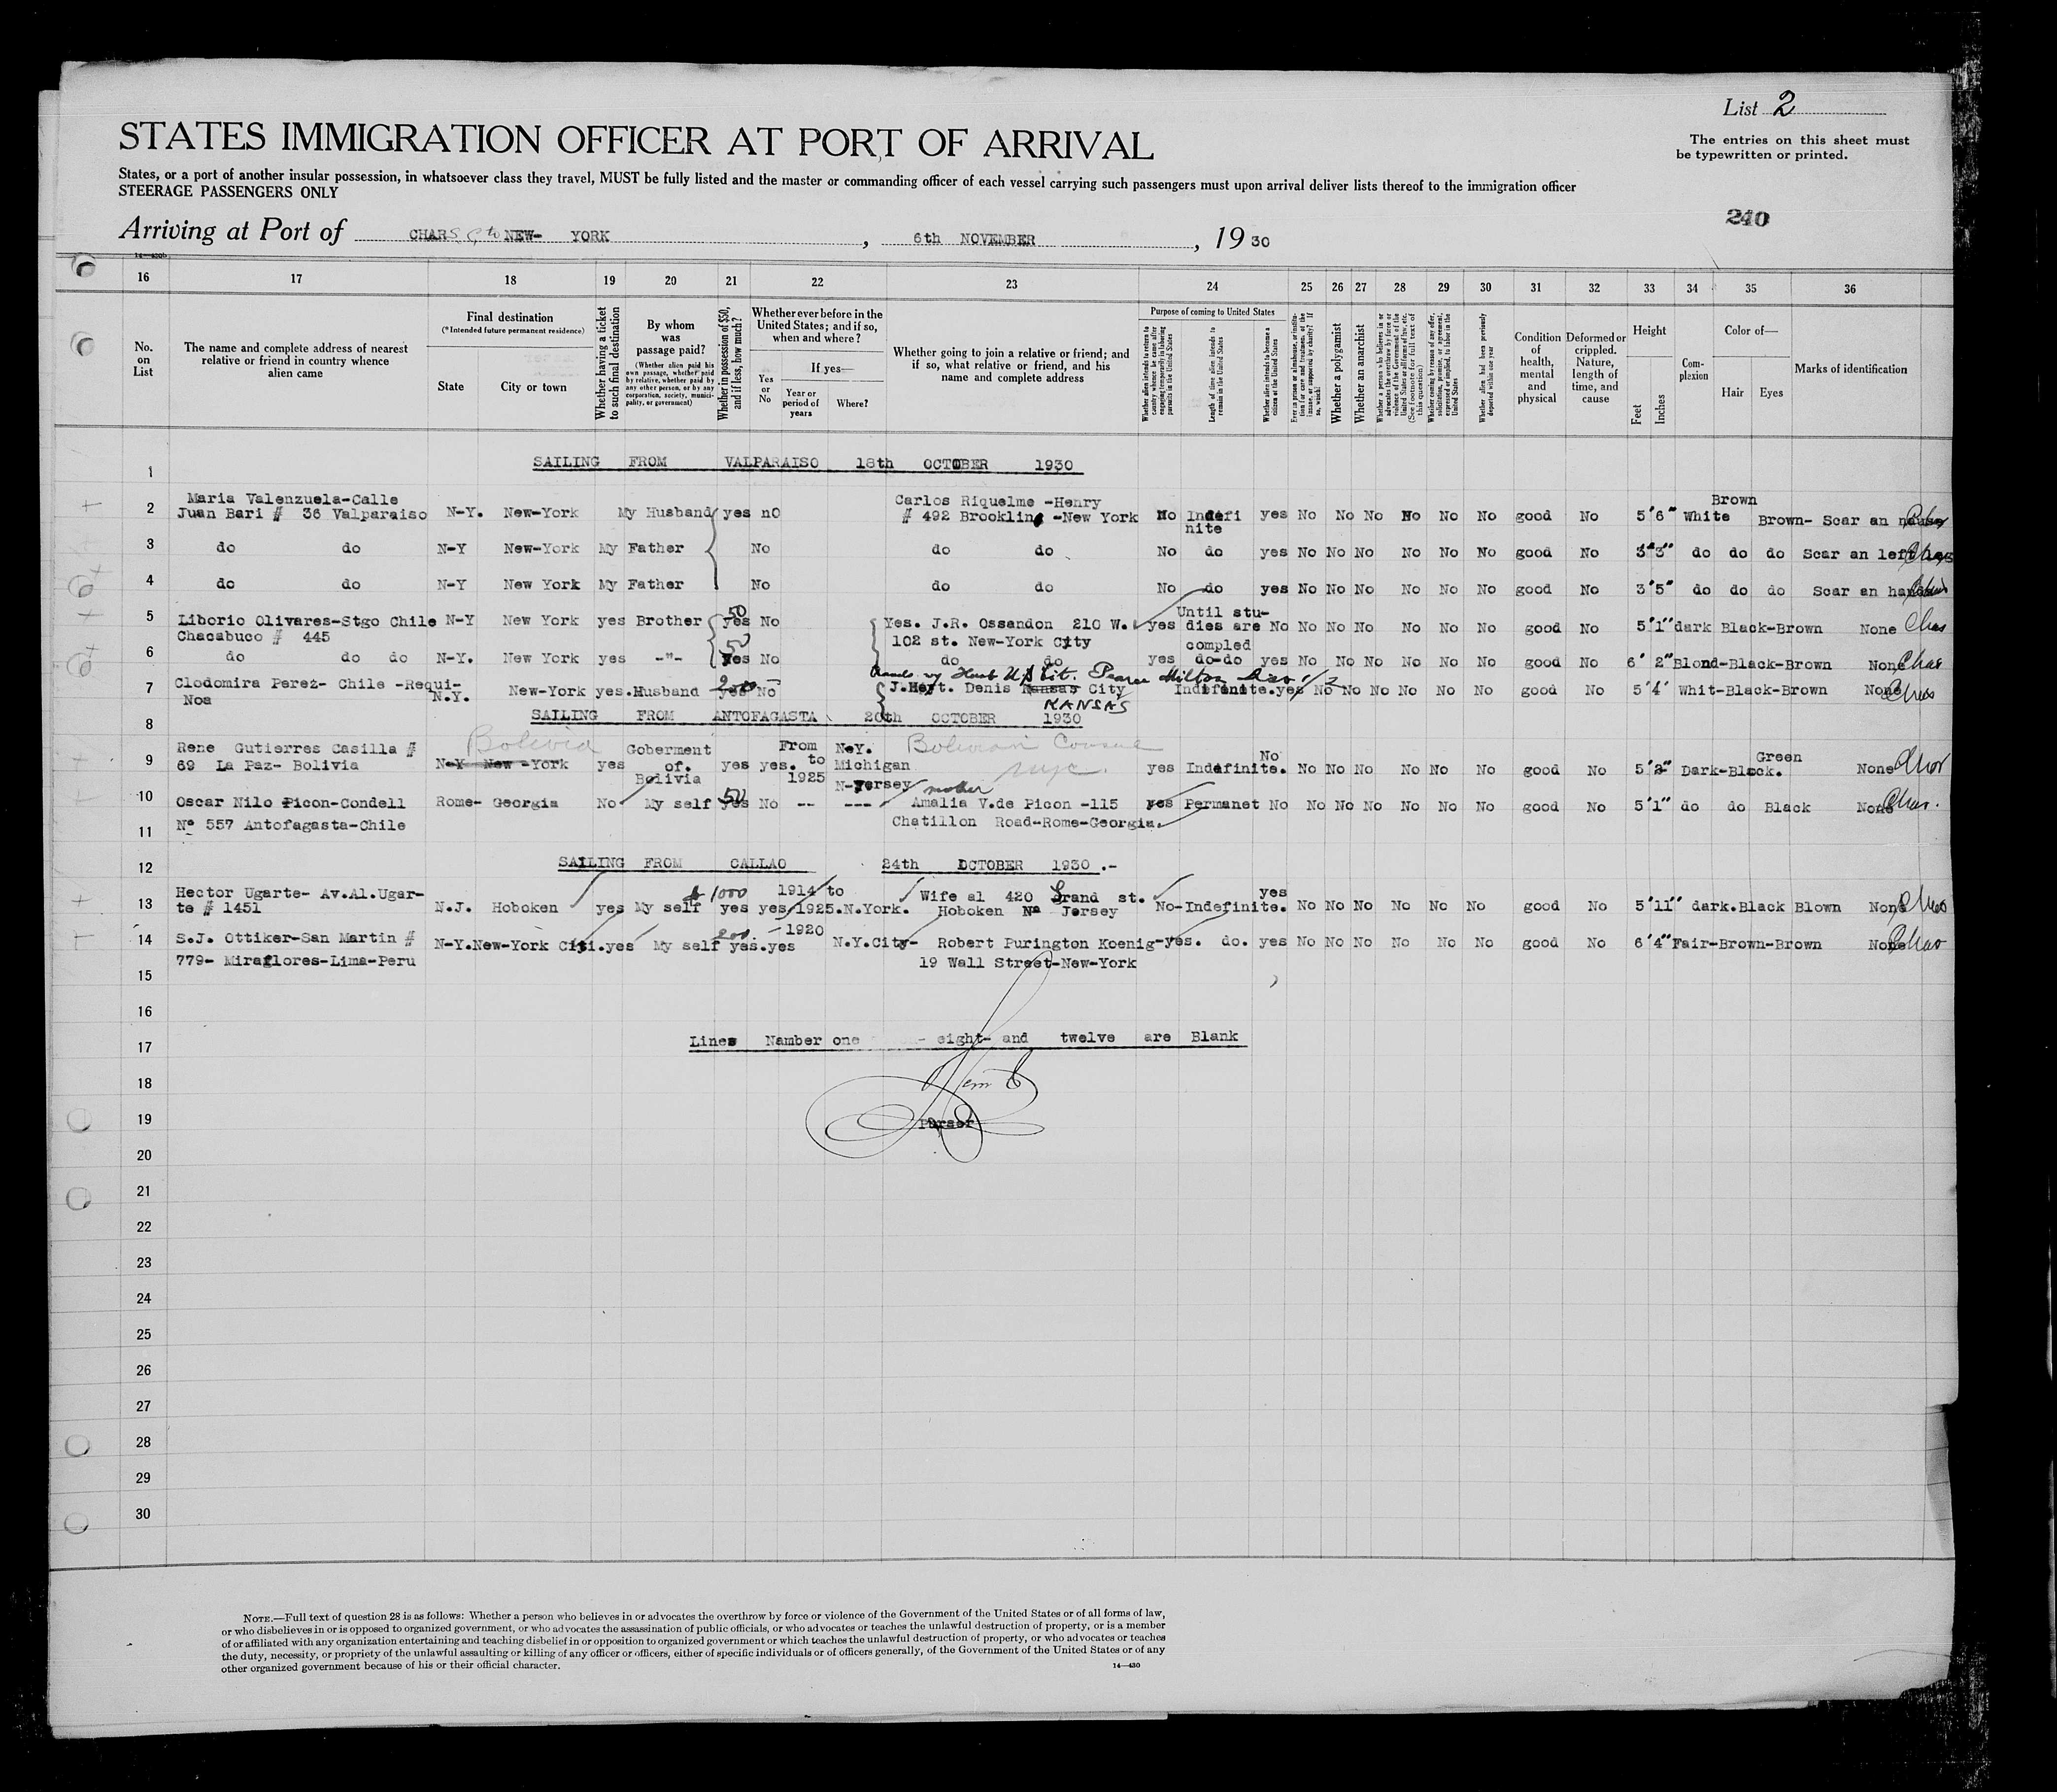 List 2
STATES IMMIGRATION OFFICER AT PORT OF ARRIVAL
The entries on this sheet must
be typewritten or printed.
States, or a port of another insular possession, in whatsoever class they travel, MUST be fully listed and the master or commanding officer of each vessel carrying such passengers must upon arrival deliver lists thereof to the immigration officer
STEERAGE PASSENGERS ONLY
240
Arriving at Port of NEW- YORK, 6th NOVEMBER, 19 30
16 17 18 19 20 21 22 23 24 25 26 27 28 29 30 31 32 33 34 35 36
No. on List
The name and complete address of nearest relative or friend in country whence alien came
Final destination
(*Intended future permanent residence)
State
City or town
Whether having a ticket to such final destination
By whom was passage paid?
(Whether alien paid his own passage, whether paid by relative, whether paid by any other person, or by any corporation, society, municipality, or government)
Whether in possession of $50, and if less, how much?
Whether ever before in the United States; and if so, when and where?
Yes or No
If yes—
Year or period of years
Where?
Whether going to join a relative or friend; and if so, what relative or friend, and his name and complete address
Purpose of coming to United States
Length of time alien intends to remain in the United States
Whether a polygamist
Whether an anarchist
Condition of health, mental and physical
Deformed or crippled. Nature, length of time, and cause
Height
Feet
Inches
Complexion
Color of—
Hair
Eyes
Marks of identification
1 SAILING FROM VALPARAISO 18th OCTOBER 1930
Maria Valenzuela-Calle Carlos Riquelme -Henry Brown
2 Juan Bari # 36 Valparaiso N-Y. New-York My Husband yes nO # 492 Brookline -New York No Indefi yes No No No No No No good No 5'6" White Brown- Scar an
nite
3 do do N-Y New-York My Father No do do No do yes No No No No No No good No 3'3" do do do Scar an left leg
4 do do N-Y New York My Father No do do No do yes No No No No No No good No 3'5" do do do Scar an
50 Until stu-
5 Liborio Olivares-Stgo Chile N-Y New York yes Brother yes No Yes. J.R. Ossandon 210 W. yes dies are No No No No No No No good No 5'1" dark Black-Brown None
Chacabuco # 445 50 102 st. New-York City compled
6 do do do N-Y. New York yes -"- Yes No do do yes do-do yes No No No No No No good No 6' 2" Blond-Black-Brown None
Clodomira Perez- Chile -Requi-
7 Noa N.Y. New-York yes. Husband yes No J.Hoyt. Denis Kansas City Indifinite. yes No No No No No No good No 5'4' Whit-Black-Brown None
KANSAS
8 SAILING FROM ANTOFAGASTA 20th OCTOBER 1930
Rene Gutierres Casilla # Bolivia Goberment From N.Y. Bolivian Consul No Green
9 69 La Paz- Bolivia N-Y New -York yes of. yes yes. to Michigan NYC. yes Indefinite. No No No No No No good No 5'2" Dark-Black. None
Bolivia 1925 N-Yersey mother
10 Oscar Nilo Picon-Condell Rome- Georgia No My self 50 yes No -- --- Amalia V.de Picon -115 yes Permanet No No No No No No No good No 5'1" do do Black None
11 Nº 557 Antofagasta-Chile Chatillon Road-Rome-Georgia.
12 SAILING FROM CALLAO 24th OCTOBER 1930 .-
Hector Ugarte- Av.Al.Ugar- $ 1000 1914 to Wife al 420 Grand st. yes
13 te # 1451 N.J. Hoboken yes My self yes yes 1925. N.York. Hoboken Na Jersey No-Indefinite. No No No No No No good No 5'11" dark. Black Blown None
200. 1920
14 S.J. Ottiker-San Martin # N-Y. New-York Citi. yes My self yes. yes N.Y.City- Robert Purington Koenig- yes. do. yes No No No No No No good No 6'4" Fair-Brown-Brown None
779- Miraflores-Lima-Peru 19 Wall Street-New-York
15
16
17 Lines Namber one eight- and twelve are Blank
18
19 Purser
20
21
22
23
24
25
26
27
28
29
30
NOTE.—Full text of question 28 is as follows: Whether a person who believes in or advocates the overthrow by force or violence of the Government of the United States or of all forms of law,
or who disbelieves in or is opposed to organized government, or who advocates the assassination of public officials, or who advocates or teaches the unlawful destruction of property, or is a member
of or affiliated with any organization entertaining and teaching disbelief in or opposition to organized government or which teaches the unlawful destruction of property, or who advocates or teaches
the duty, necessity, or propriety of the unlawful assaulting or killing of any officer or officers, either of specific individuals or of officers generally, of the Government of the United States or of any
other organized government because of his or their official character.
14—430